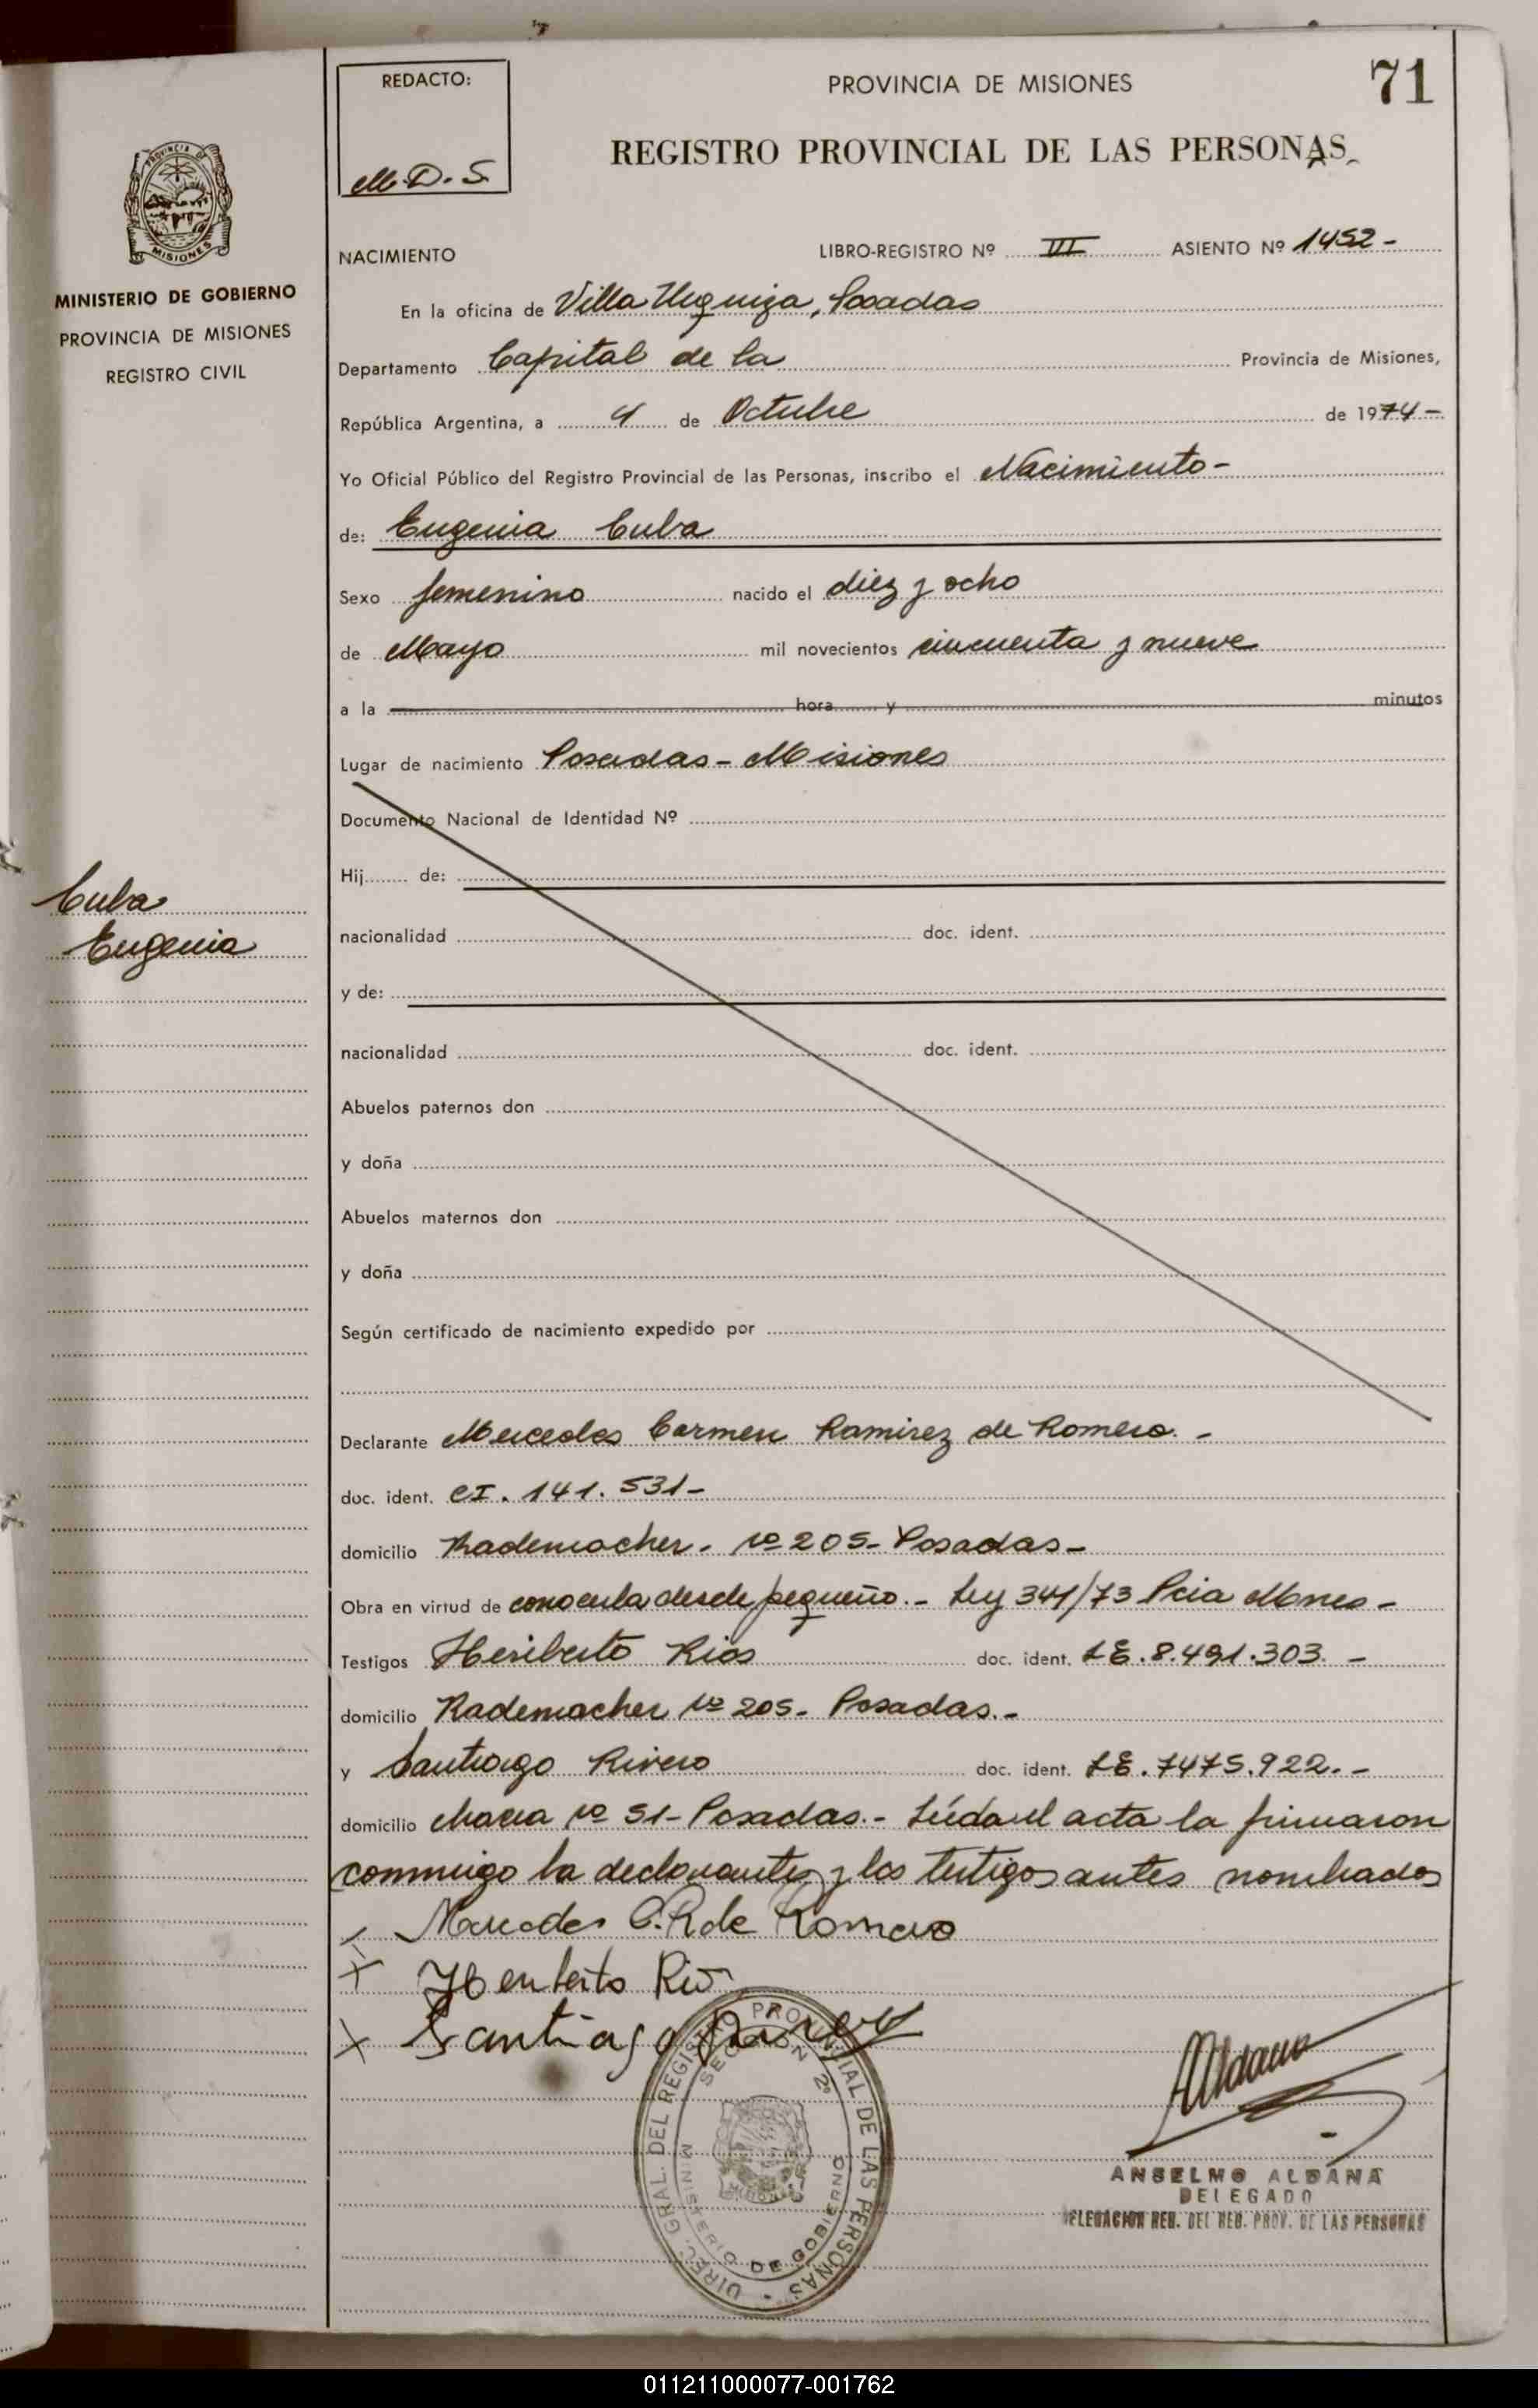 REDACTO:
M.D.S
PROVINCIA DE MISIONES
71
REGISTRO PROVINCIAL DE LAS PERSONAS
MINISTERIO DE GOBIERNO
PROVINCIA DE MISIONES
REGISTRO CIVIL
NACIMIENTO LIBRO-REGISTRO Nº VII ASIENTO Nº 1452-
En la oficina de Villa Urquiza, Posadas
Departamento Capital de la Provincia de Misiones,
República Argentina, a 4 de Octubre de 1974-
Yo Oficial Público del Registro Provincial de las Personas, inscribo el Nacimiento-
de: Eugenia Cuba
Sexo femenino nacido el diez y ocho
de Mayo mil novecientos cincuenta y nueve
a la hora y minutos
Lugar de nacimiento Posadas - Misiones
Documento Nacional de Identidad Nº
Hij de:
Cuba
Eugenia
nacionalidad doc. ident.
y de:
nacionalidad doc. ident.
Abuelos paternos don
y doña
Abuelos maternos don
y doña
Según certificado de nacimiento expedido por
Declarante Mercedes Carmen Ramirez de Romero.-
doc. ident. CI. 141.531-
domicilio Rademacher. Nº 205- Posadas-
Obra en virtud de conocerla desde pequeño.- Ley 341/73 Pcia Mnes-
Testigos Heriberto Rios doc. ident. LE.8.491.303.-
domicilio Rademacher Nº 205- Posadas.-
y Santiago Rivero doc. ident. LE.7475.922.-
domicilio Nº 51- Posadas.- Leída el acta la firmaron
conmigo la declarante y los testigos antes nombrados
Mercedes C.R de Romero
X Heriberto Rio
X Santiago
DIREC. GRAL. DEL REGISTRO PROVINCIAL DE LAS PERSONAS
SECCION 2º
MISIONES
MINISTERIO DE GOBIERNO
Aldana
ANSELMO ALDANA
DELEGADO
DELEGACION REG. DEL REG. PROV. DE LAS PERSONAS
011211000077-001762